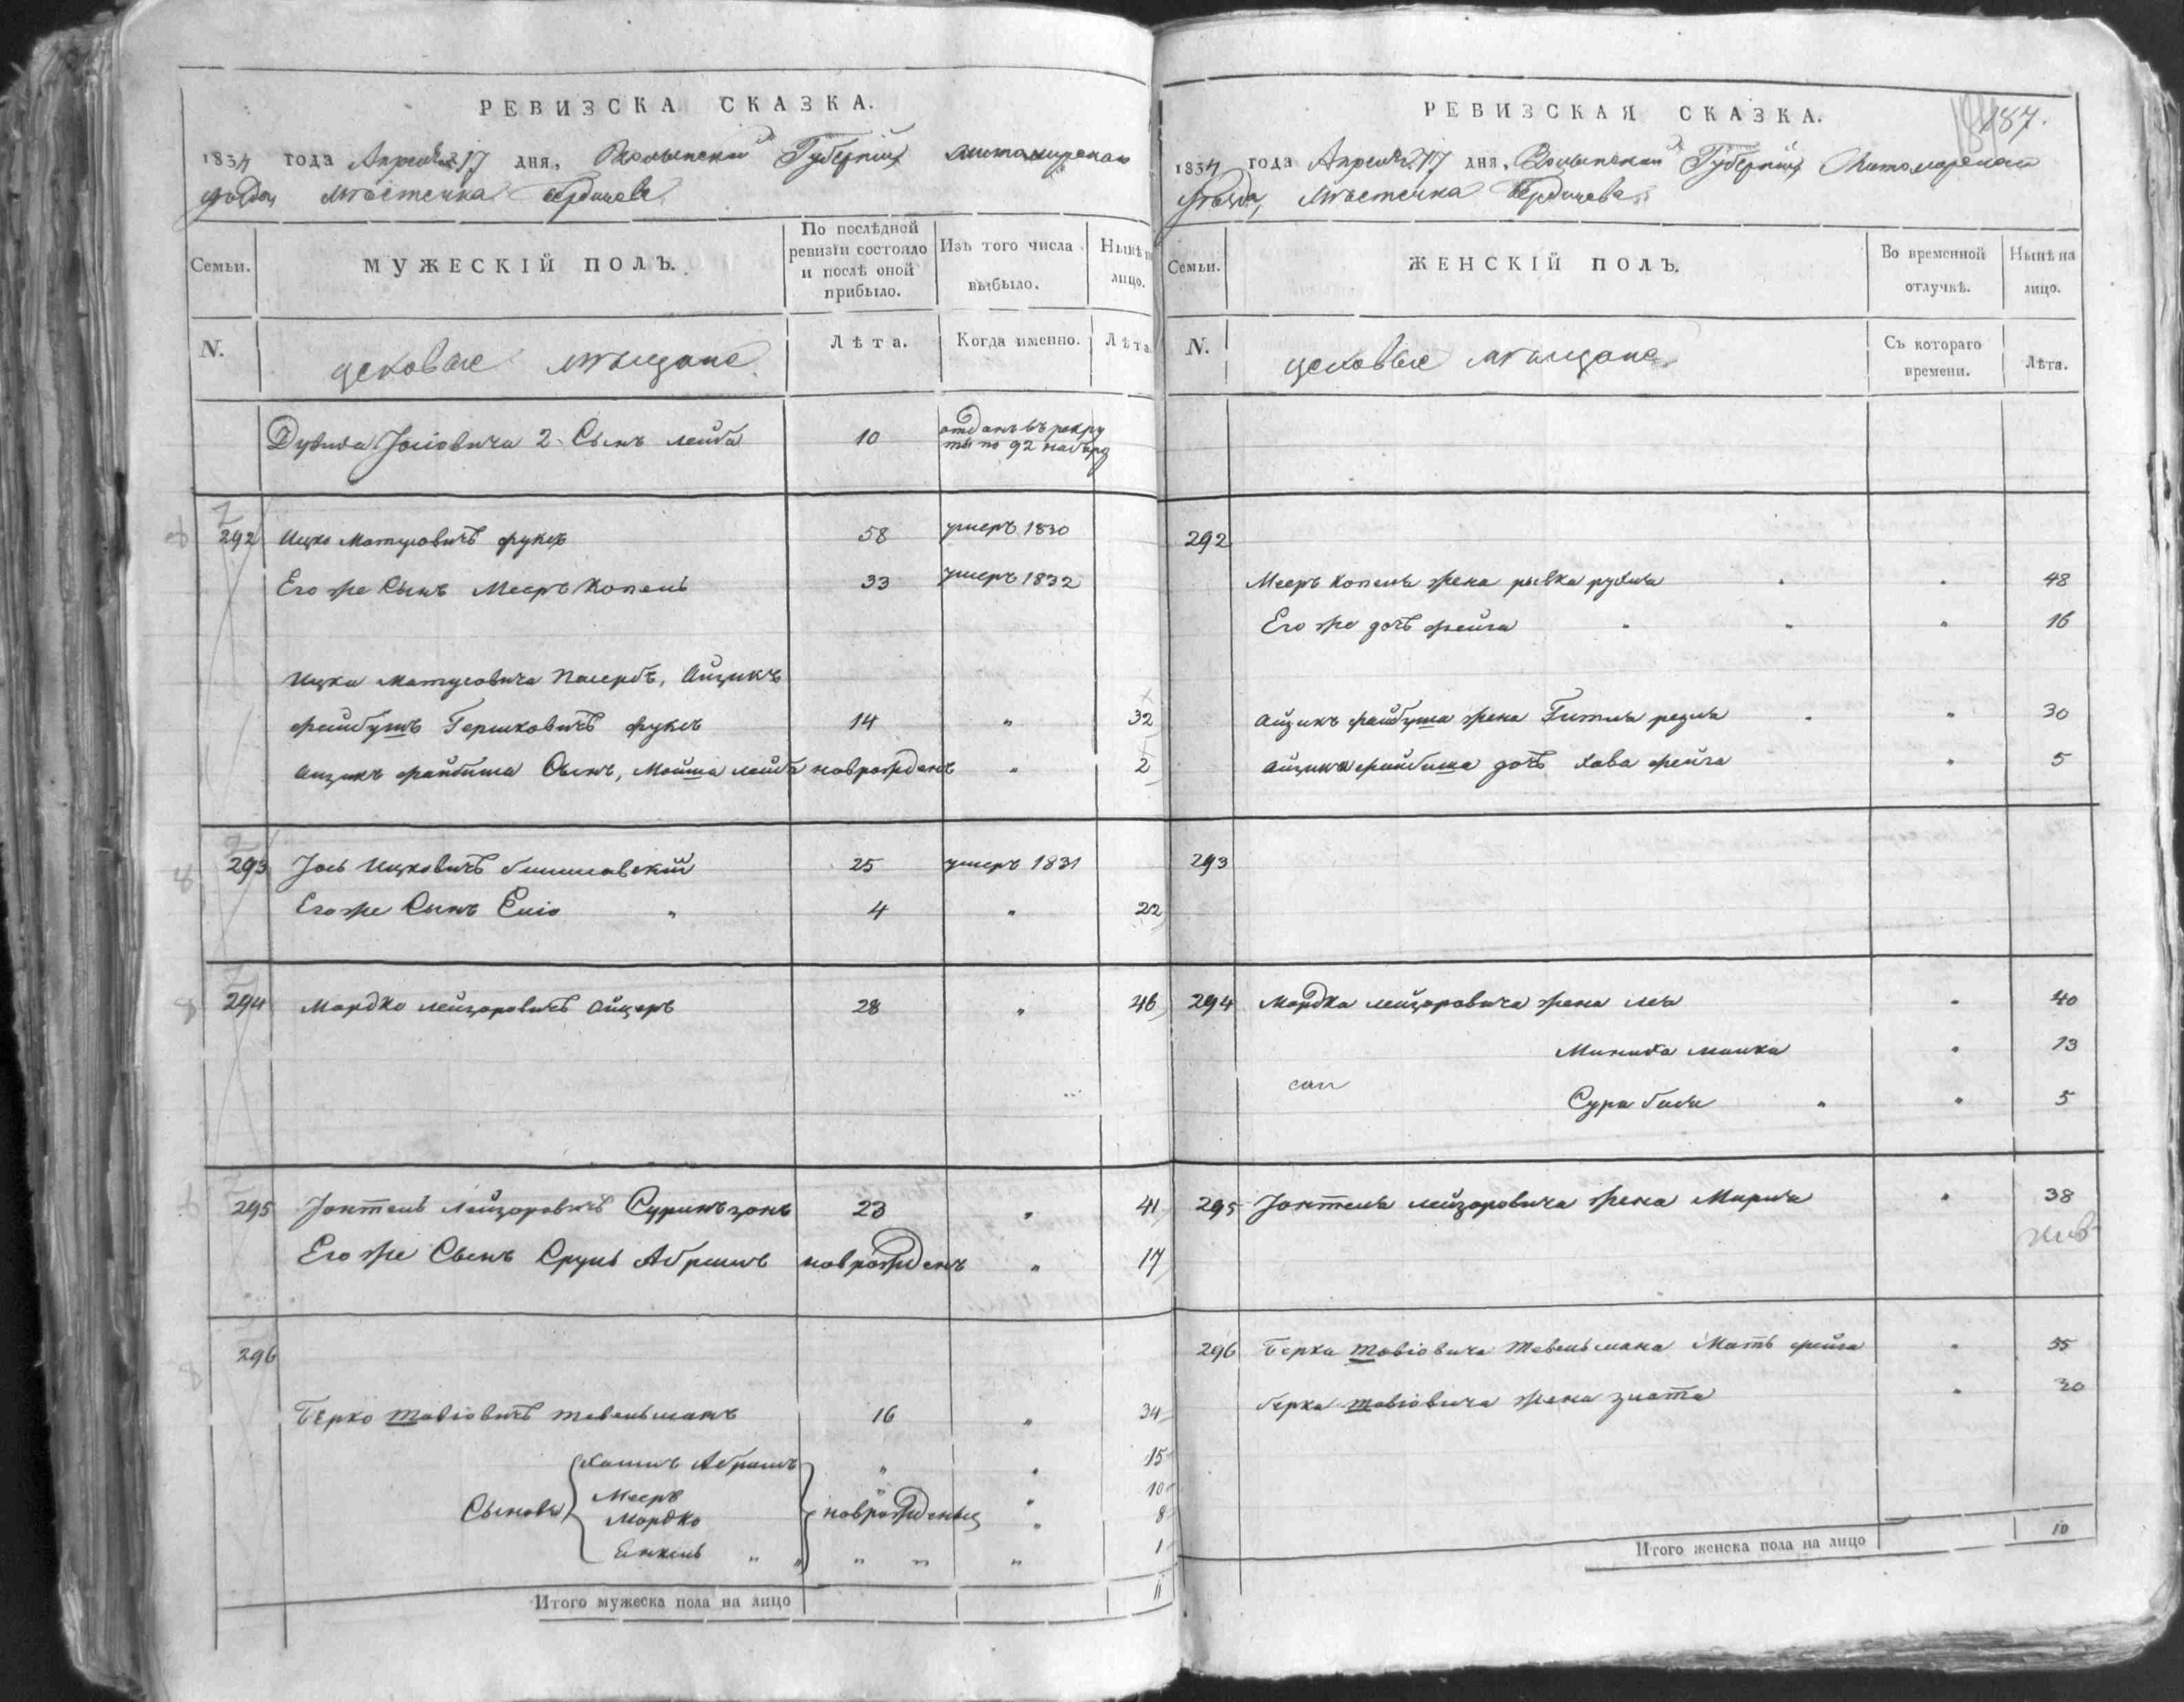 РЕВИЗСКА СКАЗКА.
1834 года Апреля 17 дня, Волынской Губернии Житомирскаго
уезда, местечка Бердичева
Семьи. МУЖЕСКІЙ ПОЛЪ. По послѣдней ревизіи состояло и послѣ оной прибыло. Изъ того числа выбыло. Нынѣ на лицо.
N. цеховые мѣщане Лѣта. Когда именно. Лѣта
Сынъ лейба 10 отданъ въ рекру
ты по 92 набору
292 Ицко Матусовичъ фуксъ 58 умеръ 1830
Его же Сынъ Мееръ Копель 33 умеръ 1832
Ицка Матусовича Пасербъ, Айзикъ
файбушъ Гершковичъ фуксъ 14 " 32
Айзикъ файбиша Сынъ, Мойша лейба новорожденъ " 2
293 Іось Ицковичъ 25 умеръ 1831
Его же Сынъ " 4 " 22
294 Мордко лейзоровичъ 28 " 46
295 Іохтель лейзоровичъ 23 " 41
Его же Сынъ Сруль Абрамъ новорожденъ " 17
296
Берко товіовичъ тевельманъ 16 " 34
Хаимъ Абрамъ " " 15
Мееръ " " 10
Сыновья Мордко новорожденны " 8
Енкель " " " " " 1
Итого мужеска пола на лицо 11
РЕВИЗСКАЯ СКАЗКА.
187.
1834 года Апреля 17 дня, Волынской Губернии Житомирскаго
уезда, местечка Бердичева
Семьи. ЖЕНСКІЙ ПОЛЪ. Во временной отлучкѣ. Нынѣ на лицо.
N. цеховые мѣщане Съ котораго времени. Лѣта.
292
Мееръ Копеля жена рывка рухля " " 48
Его же дочь фейга " " " 16
Айзикъ файбуша жена Гитля рейзля " " 30
Айзика файбиша дочь хава фейга " 5
293
294 Мордка лейзоровича жена лея " 40
" 13
Сура " " 5
295 Іохтеля лейзоровича жена Мирля " 38
296 Берка товіовича тевельмана Мать фейга " 55
берка товіовича жена злота " 30
Итого женска пола на лицо 10